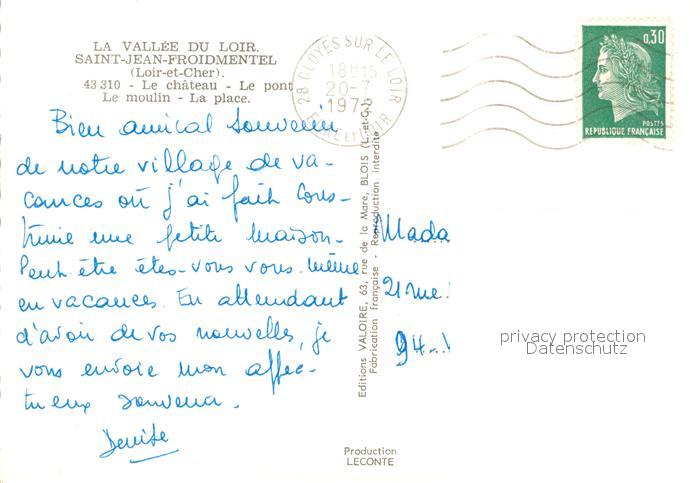 LA VALLÉE DU LOIR.
SAINT-JEAN-FROIDMENTEL
(Loir-et-Cher).
43 310 - Le château - Le pont
Le moulin - La place.
Bien amical souvenir
de notre village de va-
cances où j'ai fait cons-
truire une petite maison.
Peut être êtes-vous vous même
en vacances. En attendant
d'avoir de vos nouvelles, je
vous envoie mon affec-
tueux souvenir.
Denise
28 CLOYES SUR LE LOIR
18H15
20-7
EURE ET LOIR
0,30
POSTES
REPUBLIQUE FRANÇAISE
Editions VALOIRE, 63, rue de la Mare, BLOIS (L.-et-C.)
Fabrication française - Reproduction interdite
Mada
21 rue
94
privacy protection
Datenschutz
Production
LECONTE